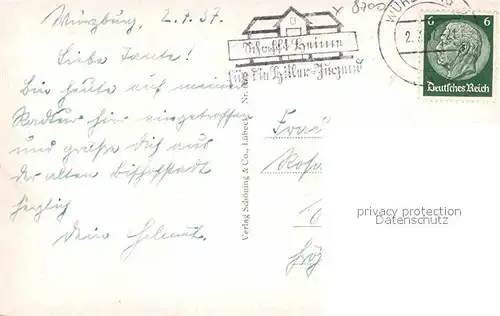 Würzburg, 2.7.37.
8700
Liebe Tante!
Bin heute auf meiner
Radtur hier eingetroffen
und grüße dich aus
der alten Bischofstadt
herzlich
Dein Helmut.
WÜRZBURG
2.
Schafft Heime
für die Hitler-Jugend
6 6
Deutsches Reich
Verlag Schöning & Co., Lübeck
Frau
privacy protection
Datenschutz